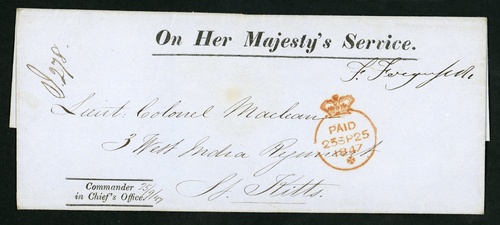 On Her Majesty's Service.
P278.
Lieut: Colonel Maclean
3 West India Regiment
St. Kitts.
PAID
25SP25
1847
Commander
in Chief's Office.
25/9/47